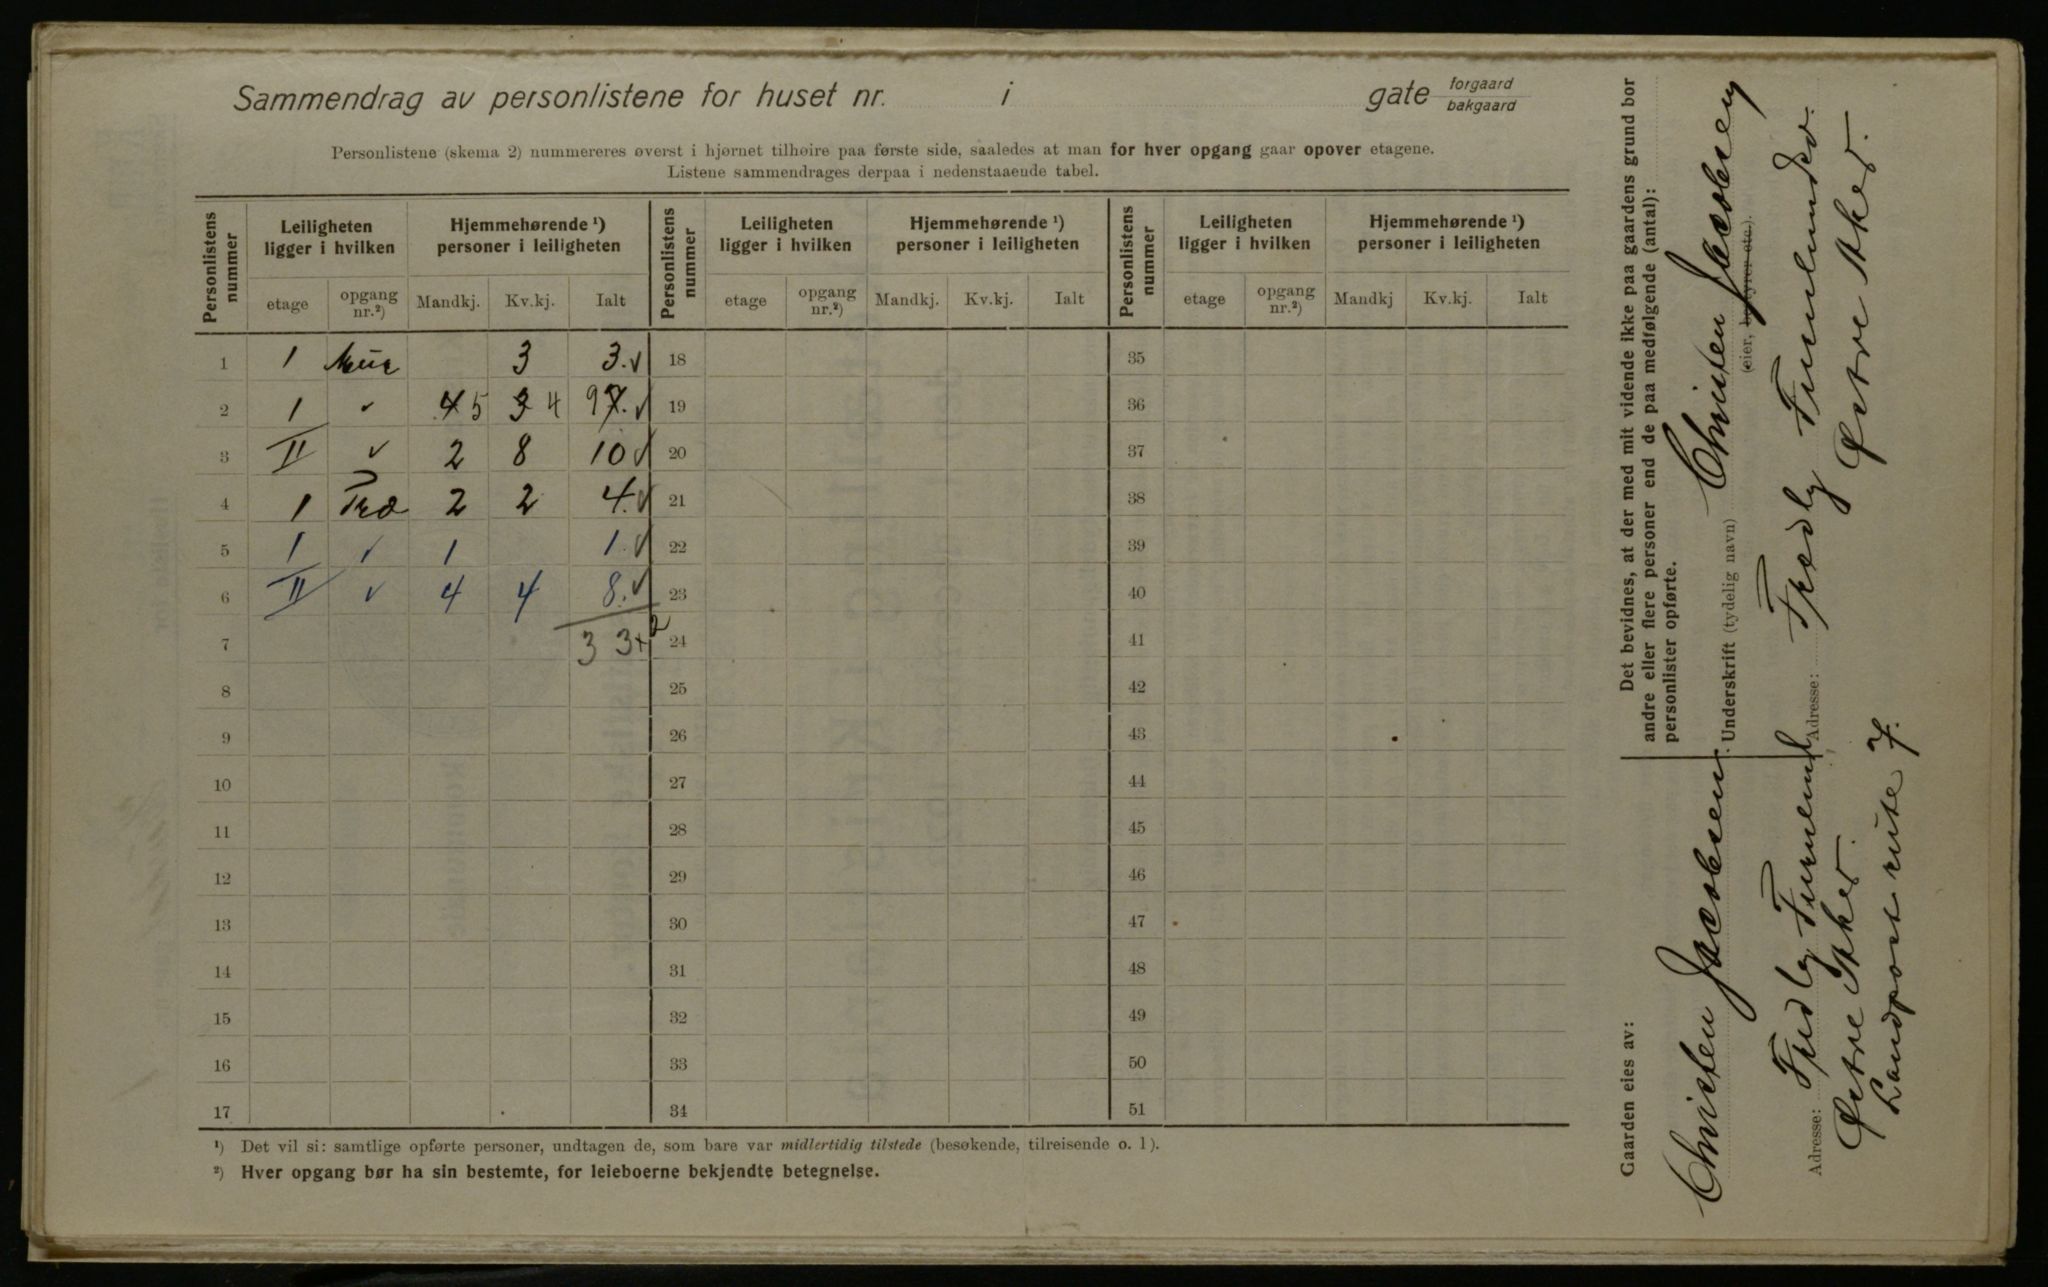 Sammendrag av personlistene for huset nr. i gate forgaard bakgaard
Personlistene (skema 2) nummereres øverst i hjørnet tilhøire paa første side, saaledes at man for hver opgang gaar opover etagene.
Listene sammendrages derpaa i nedenstaaende tabel.
Personlistens nummer Leiligheten ligger i hvilken Hjemmehørende ¹) personer i leiligheten Personlistens nummer Leiligheten ligger i hvilken Hjemmehørende ¹) personer i leiligheten Personlistens nummer Leiligheten ligger i hvilken Hjemmehørende ¹) personer i leiligheten
etage opgang nr.²) Mandkj. Kv.kj. Ialt etage opgang nr.²) Mandkj. Kv.kj. Ialt etage opgang nr.²) Mandkj Kv.kj. Ialt
1 1 Mur 3 3. ✓ 18 35
2 1 ✓ 4 5 3 4 9 7. ✓ 19 36
3 II ✓ 2 8 10 ✓ 20 37
4 1 Træ 2 2 4. ✓ 21 38
5 1 ✓ 1 1. ✓ 22 39
6 II ✓ 4 4 8. ✓ 23 40
7 33+2 24 41
8 25 42
9 26 43
10 27 44
11 28 45
12 29 46
13 30 47
14 31 48
15 32 49
16 33 50
17 34 51
¹) Det vil si: samtlige opførte personer, undtagen de, som bare var midlertidig tilstede (besøkende, tilreisende o. l).
²) Hver opgang bør ha sin bestemte, for leieboerne bekjendte betegnelse.
Det bevidnes, at der med mit vidende ikke paa gaardens grund bor
andre eller flere personer end de paa medfølgende (antal):
personlister opførte.
Underskrift (tydelig navn) Christen Jacobsen
(eier, bestyrer etc.).
Adresse: Fredly
Østre Aker.
Gaarden eies av:
Christen Jacobsen
Adresse: Fredly
Østre Aker.
Landpost rute 7.